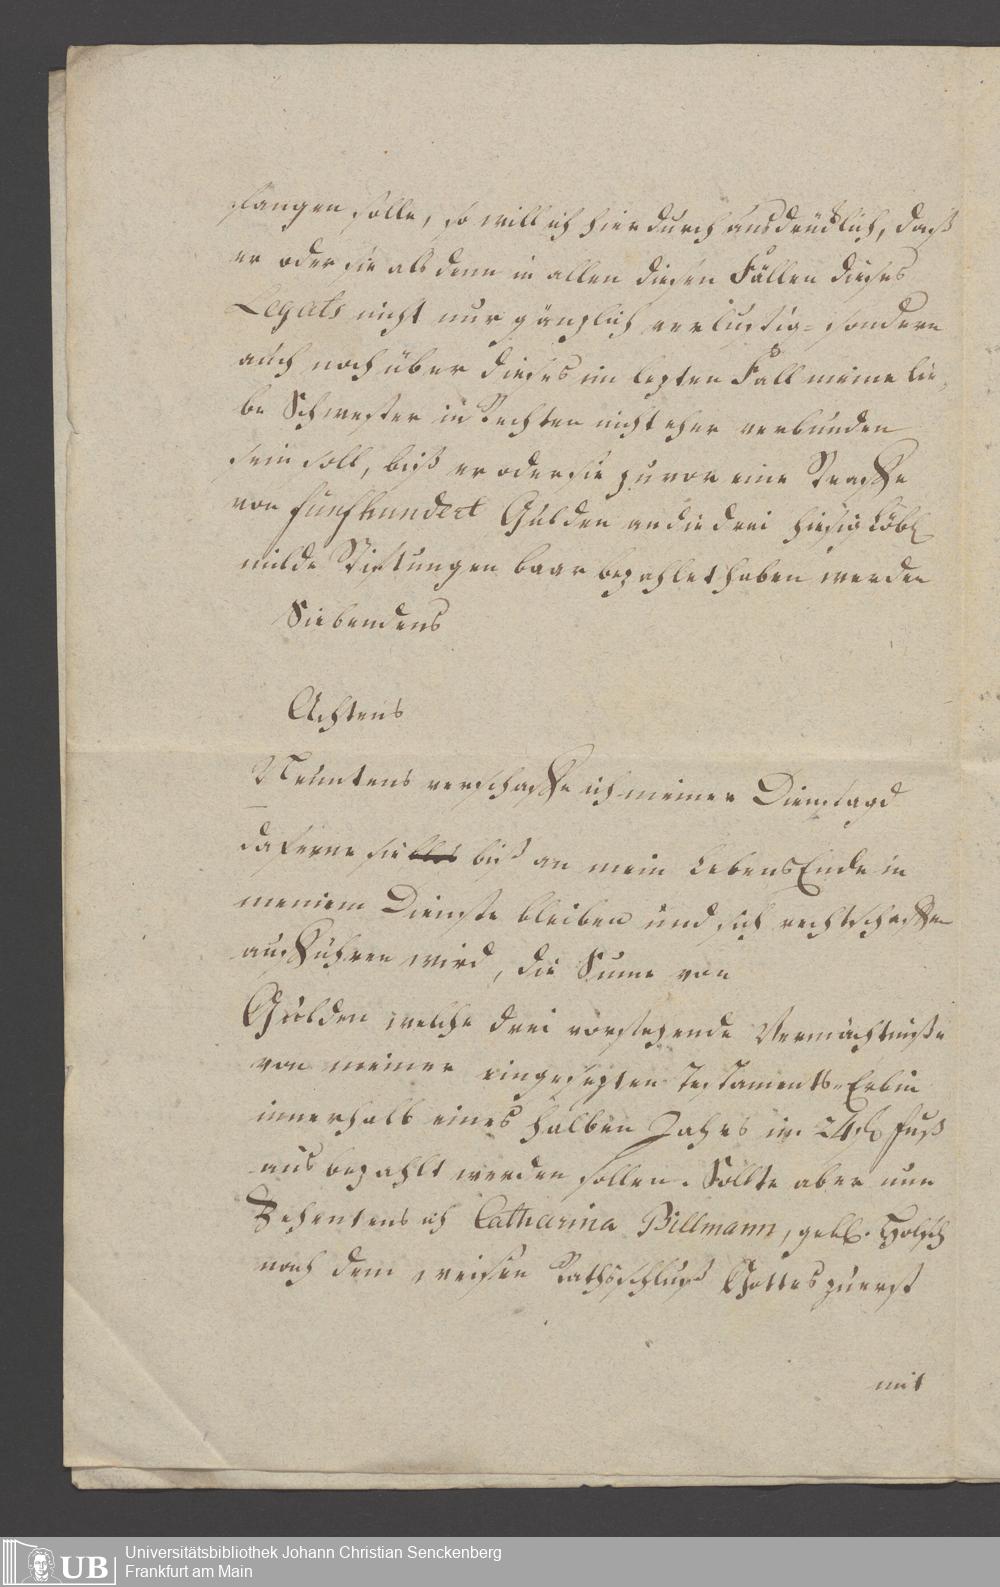 fangen solle, so will ich hierdurch ausdrücklich, daß
er oder sie als denn in allen diesen Fällen dieses
Legats nicht nur gänzlich verlustig= sondern
auch noch über dieses im lezten Fall meine lie=
be Schwester in Rechten nicht eher verbunden
sein soll, biß er oder sie zuvor eine Straffe
von fünfhundert Gulden an die drei hiesig Löbl
milde Stiftungen baar bezahlet haben werden
Siebendens
Achtens
Neuntens verschaffe ich meiner Dienstagd
daferne sie biß an mein LebensEnde in
meniem Dienste bleiben und sich rechtschaffen
aufführen wird, die Sume von
Gulden welche drei vorstehende Vermächtniße
von meiner eingesezten Testaments=Erbin
innerhalb eines halben Jahrs im 24 fl Fuß
ausbezahlt werden sollen. Sollte aber nun
Zehentens ich Catharina Billmann, gebl. Holsch
nach dem weisen Rathsschluß Gottes zuerst
mit
UB
Universitätsbibliothek Johann Christian Senckenberg
Frankfurt am Main